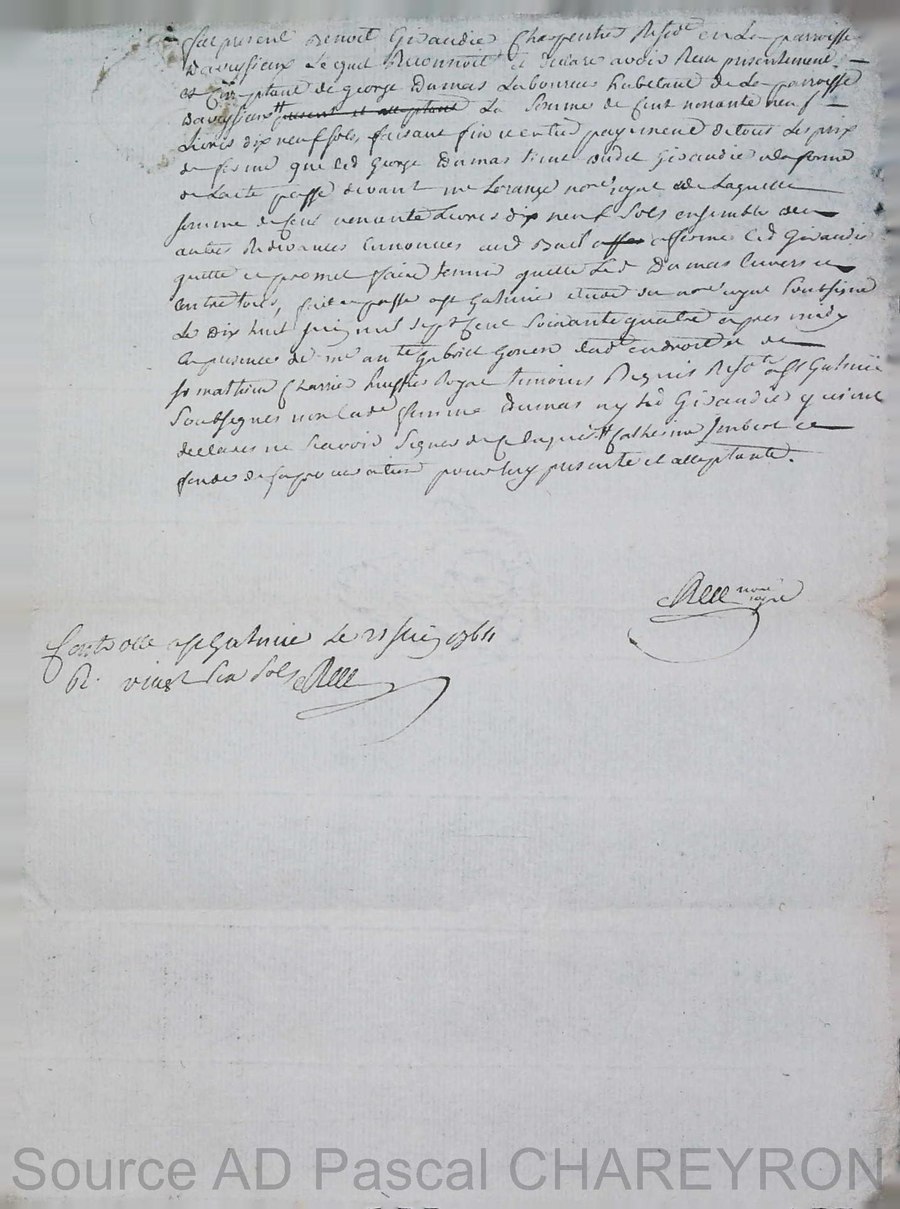 fut présent Benoit Giraudier Charpentier Résidt en La parroisse
Daveysieux Lequel Reconnoit et declare avoir Reçu présentement
et Comptant de george Dumas Laboureur habitant de La parroisse
Daveysieux # present et acceptant La Somme de Cent nonante neuf
Livres dix neuf sols, faisant fin et entier payement de tous Les prix
de ferme que led George Dumas tient dudit Giraudier a la forme
de Lacte passé devant me Lorange nore royal de Laquelle
somme de Cent nonante Livres dix neuf Sols ensemble des
autres Redevances Ennoncés aud Bail afferme Led Giraudier
quitte et promet faire tenir quitte Led Dumas Envers et
Contre tous, fait et passé a St Galmier etude du nore royal Soubsigné
Le Dix huit Juin mil sept Cent Soixante quatre apres midy
En presence de me
Gabriel endroit et de
Sr mathieu Charrier huissier Royal temoins Requis Résidts a St Galmier
Soubsignés non lade femme Dumas ny led Giraudier qui ont
declaré ne Scavoir Signer de ce Enquis # Catherine Imbert sa
femme pour luy présente et acceptante.
nore
royal
Controllé a St Galmier Le 21 Juin 1764
R. vingt Six Sols
Source AD Pascal CHAREYRON